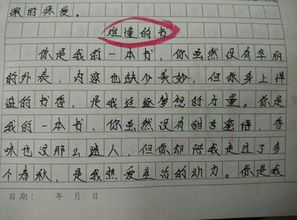 难懂的书
你是我的一本书，你虽然没有华丽
的外表，内容也缺个美妙，但你身上洋
溢的书香，是我延延梦想的力量。你是
我的一本书，你虽然没有甜言蜜语，香
味也没那么迷人，但你却陪我走过了多
个春秋，是我热爱生活的动力。你是我
日期： 年 月 日